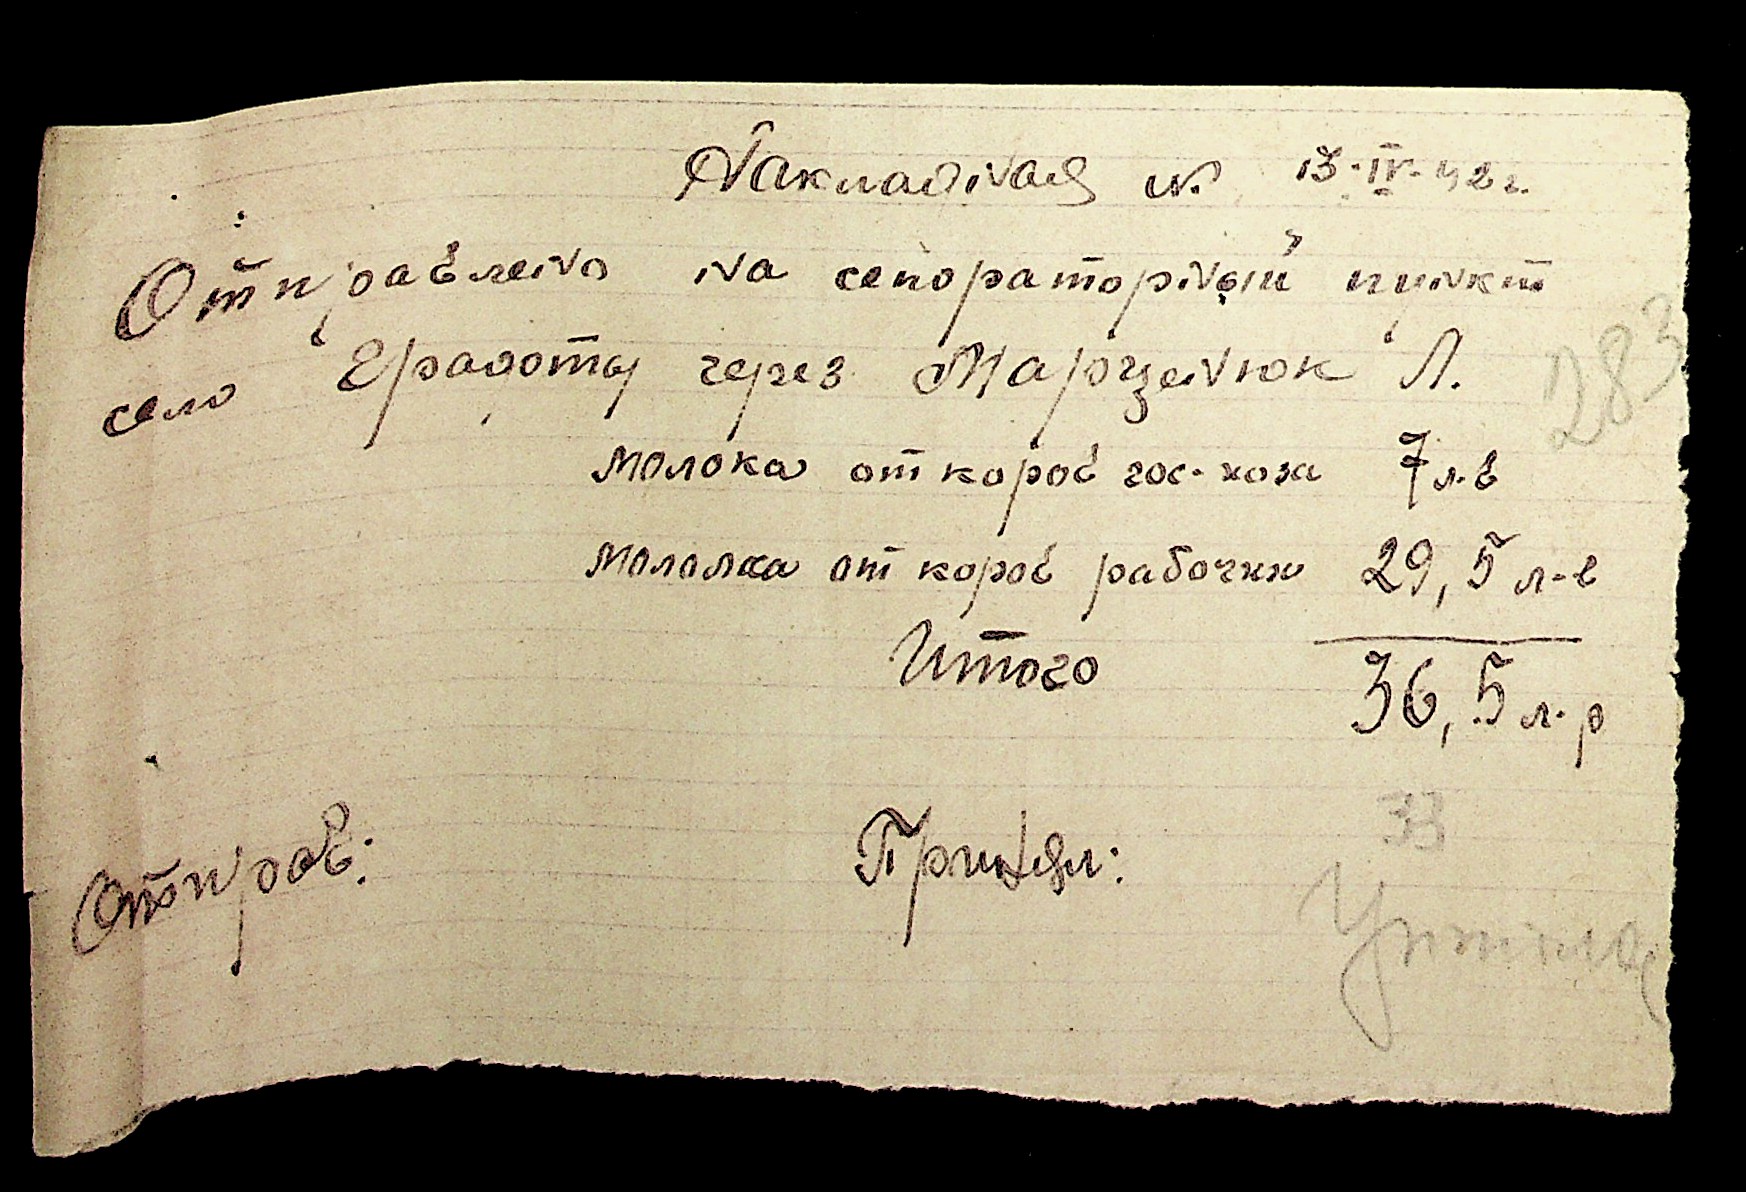 Накладная №. 13-IV-42 г.
Отправлено на сепораторный пункт
село Ерадоты через Марценюк Л.
молока от коров гос-хоза 7 л-в
мололка от коров рабочих 29,5 л-в
Итого 36,5 л-р
Отправ: Принял:
283
33